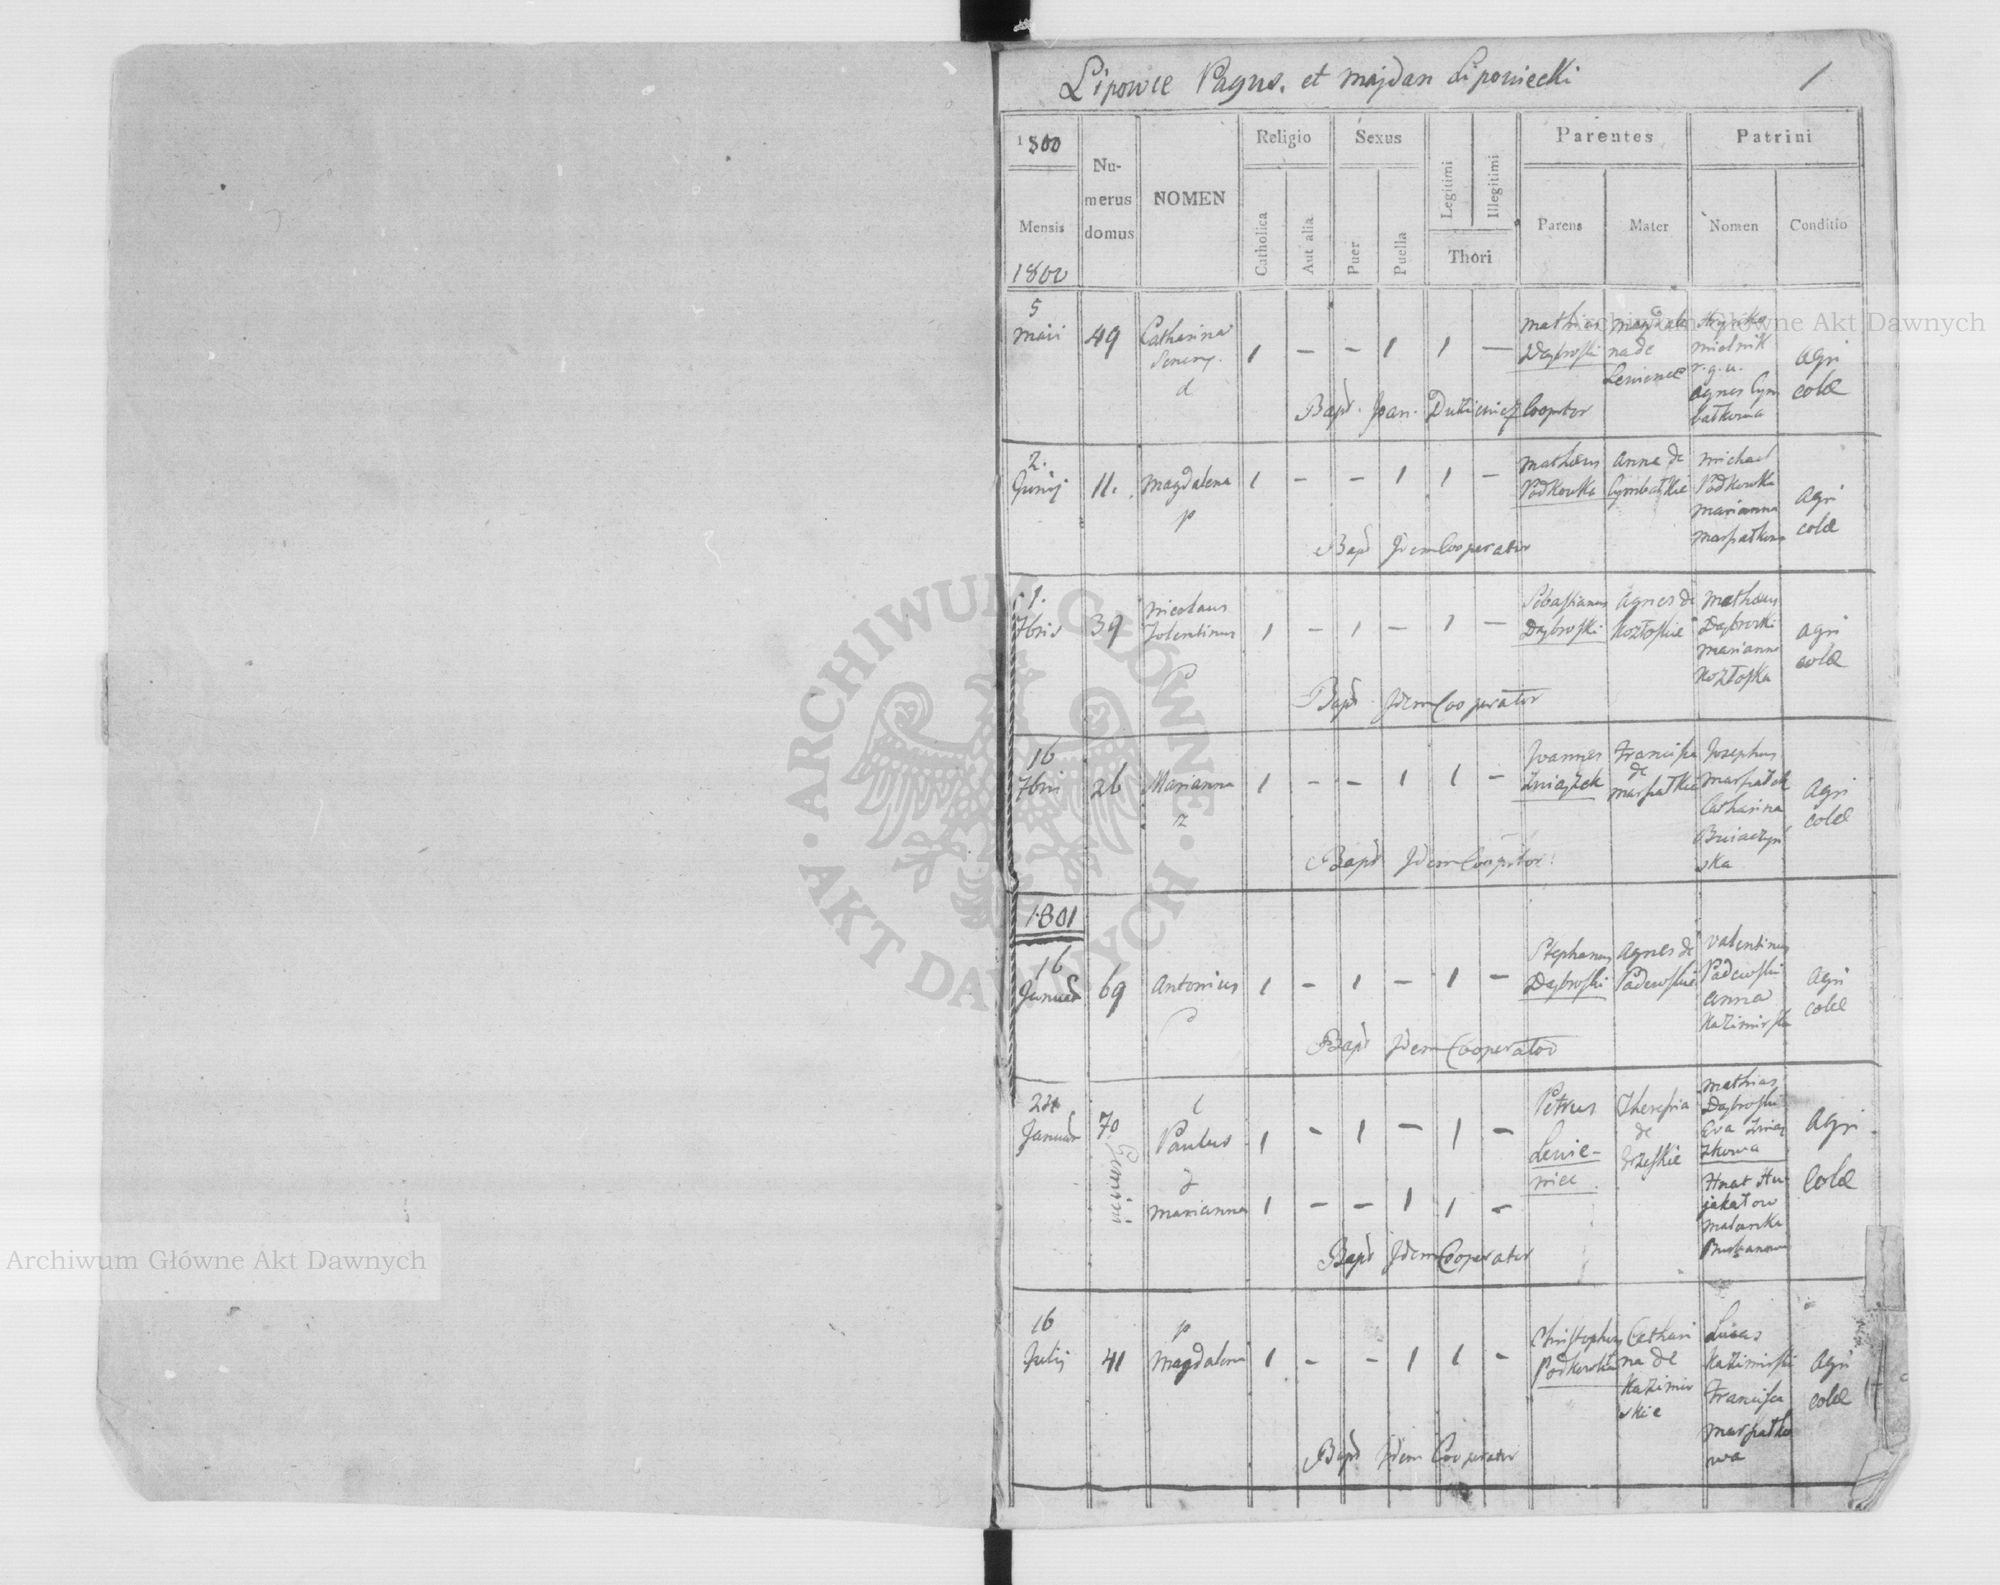 Lipowce Pagus. et Majdan Lipowiecki
1
1800
Mensis
1800
Nu-
merus
domus
NOMEN
Religio
Catholica
Aut alia
Sexus
Puer
Puella
Legitimi
Illegitimi
Thori
Parentes
Parens
Mater
Patrini
Nomen
Conditio
5
Maii
49
Catharina
Senens.
d
1 – – 1 1 –
Mathias
Dąbroski
Magdale
na de
Lenience
Hrynko
Mielnik
r.g.u.
Agnes Cym
bałkowa
Agri
colæ
Bapt. Joan. Cooptor
2.
Junij
11.
Magdalena
p
1 – – 1 1 –
Mathæus
Podkowka
Anna de
Cymbałkie
Michael
Podkowka
Marianna
Agri
colæ
Bapt Idem Cooperator
1.
7bris
39
Nicolaus
Tolentinus
1 – 1 – 1 –
Sebastianus
Dąbroski
Agnes de
Kozłoskie
Mathæus
Dąbroski
Marianna
Kozłoska
Agri
colæ
Bapt Idem Cooperator
16
7bris
26
Marianna
z
1 – – 1 1 –
Joannes
Związek
Francisca
de
Josephus
Catharina
ska
Agri
colæ
Bapt Idem Cooptor
1801
16
Januar
69
Antonius
1 – 1 – 1 –
Stephanus
Dąbroski
Agnes de
Padewskie
Valentinus
Padewski
Anna
Kazimirska
Agri
colæ
Bapt Idem Cooperator
24
Januar
70
Gemini
Paulus
Marianna
1 – 1 – 1 –
1 – – 1 1 –
Petrus
Lenie-
niec
Theresia
de
Mathias
Dąbroski
Eva Zwią
zkowa
Agri
Colæ
Bapt Idem Cooperator
16
Julij
41
p
Magdalena
1 – – 1 1 –
Christophorus
Podkowka
Cathari
na de
Kazimir
skie
Lucas
Kazimirski
Francisca
Agri
colæ
Bapt Idem Cooperator
ARCHIWUM GŁÓWNE AKT DAWNYCH
Archiwum Główne Akt Dawnych
Archiwum Główne Akt Dawnych